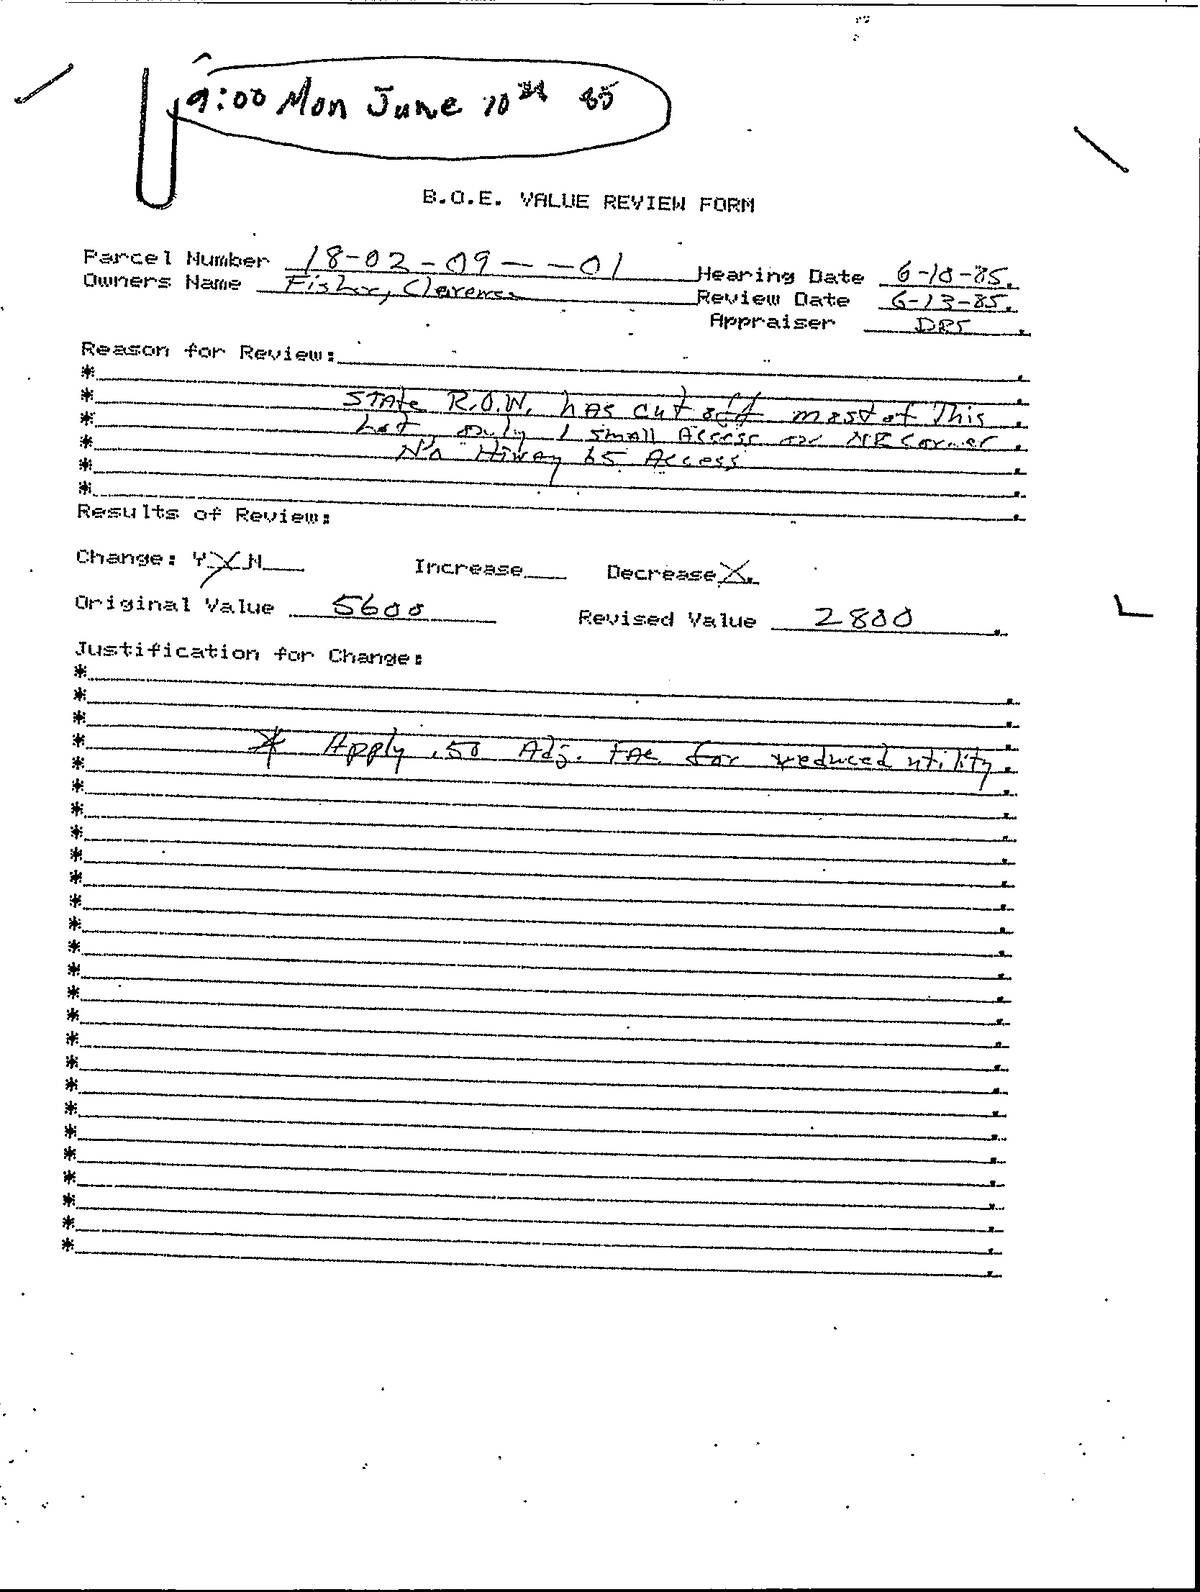 9:00 Mon June 10th 85
B.O.E. VALUE REVIEW FORM
Parcel Number 18-02-09- - -01
Hearing Date 6-10-85.
Owners Name Fisher, Clarence
Review Date 6-13-85.
Appraiser .
Reason for Review: .
* .
* STATE R.O.W. has cut off most of This .
* Lot, only 1 small Access on NE Corner .
* No Hiway 65 Access .
* .
* .
Results of Review:
Change: Y X N Increase Decrease X.
Original Value 5600 Revised Value 2800 .
Justification for Change:
* .
* .
* .
* * Apply .50 Adj. FAC for reduced utility .
* .
* .
* .
* .
* .
* .
* .
* .
* .
* .
* .
* .
* .
* .
* .
* .
* .
* .
* .
* .
* .
* .